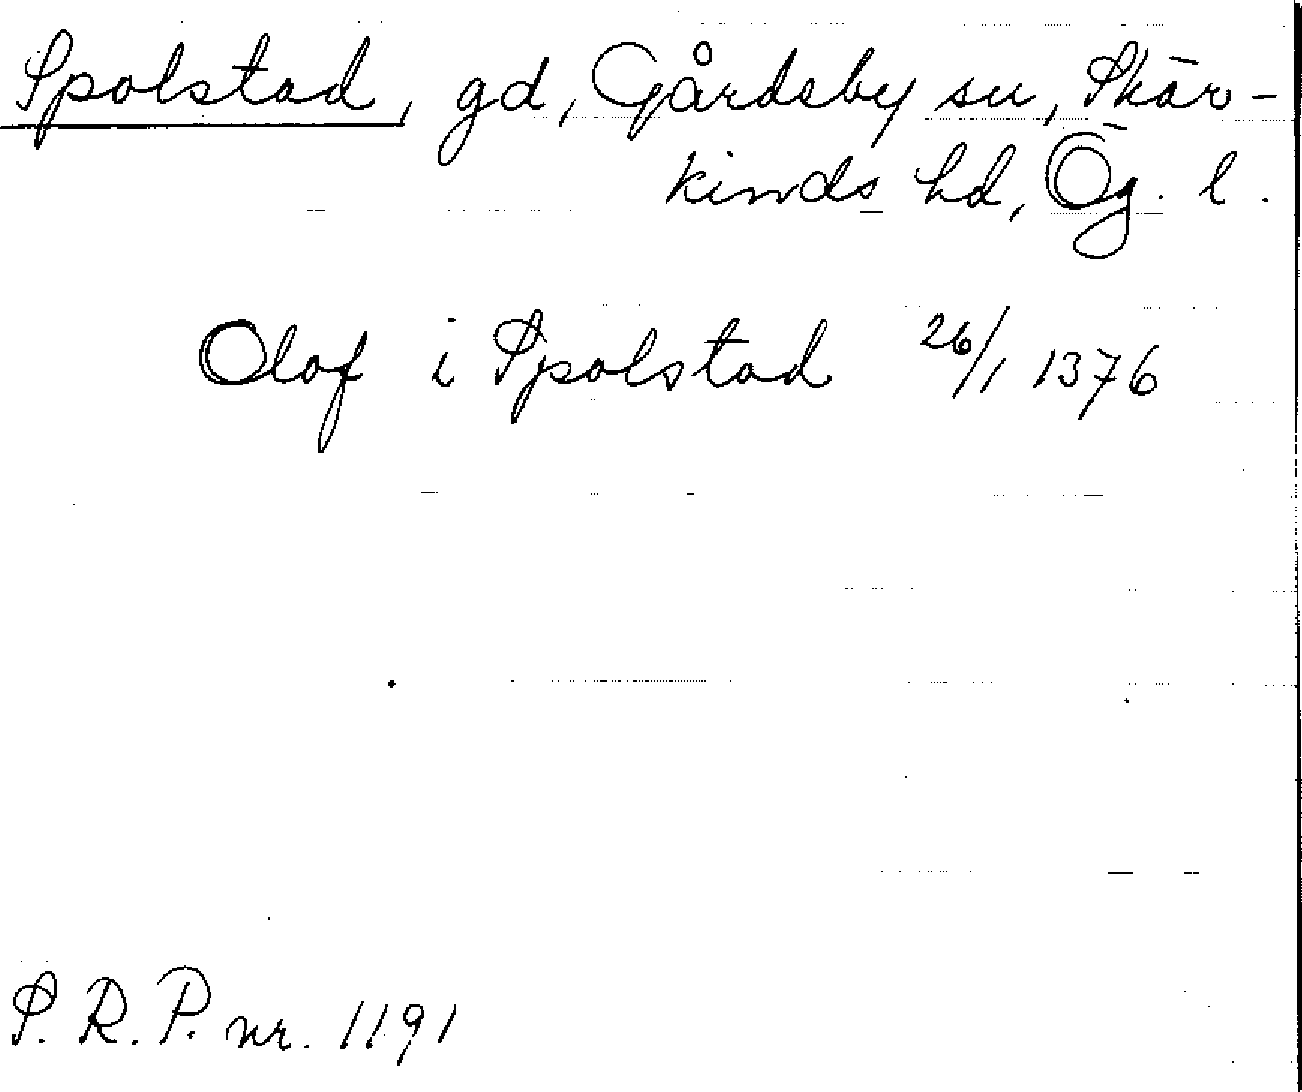 Spolstad, gd, Gårdsby sn, Skär-
kinds hd, Ög. l.
Olof i Spolstad 26/1 1376
S. R. P. nr. 1191